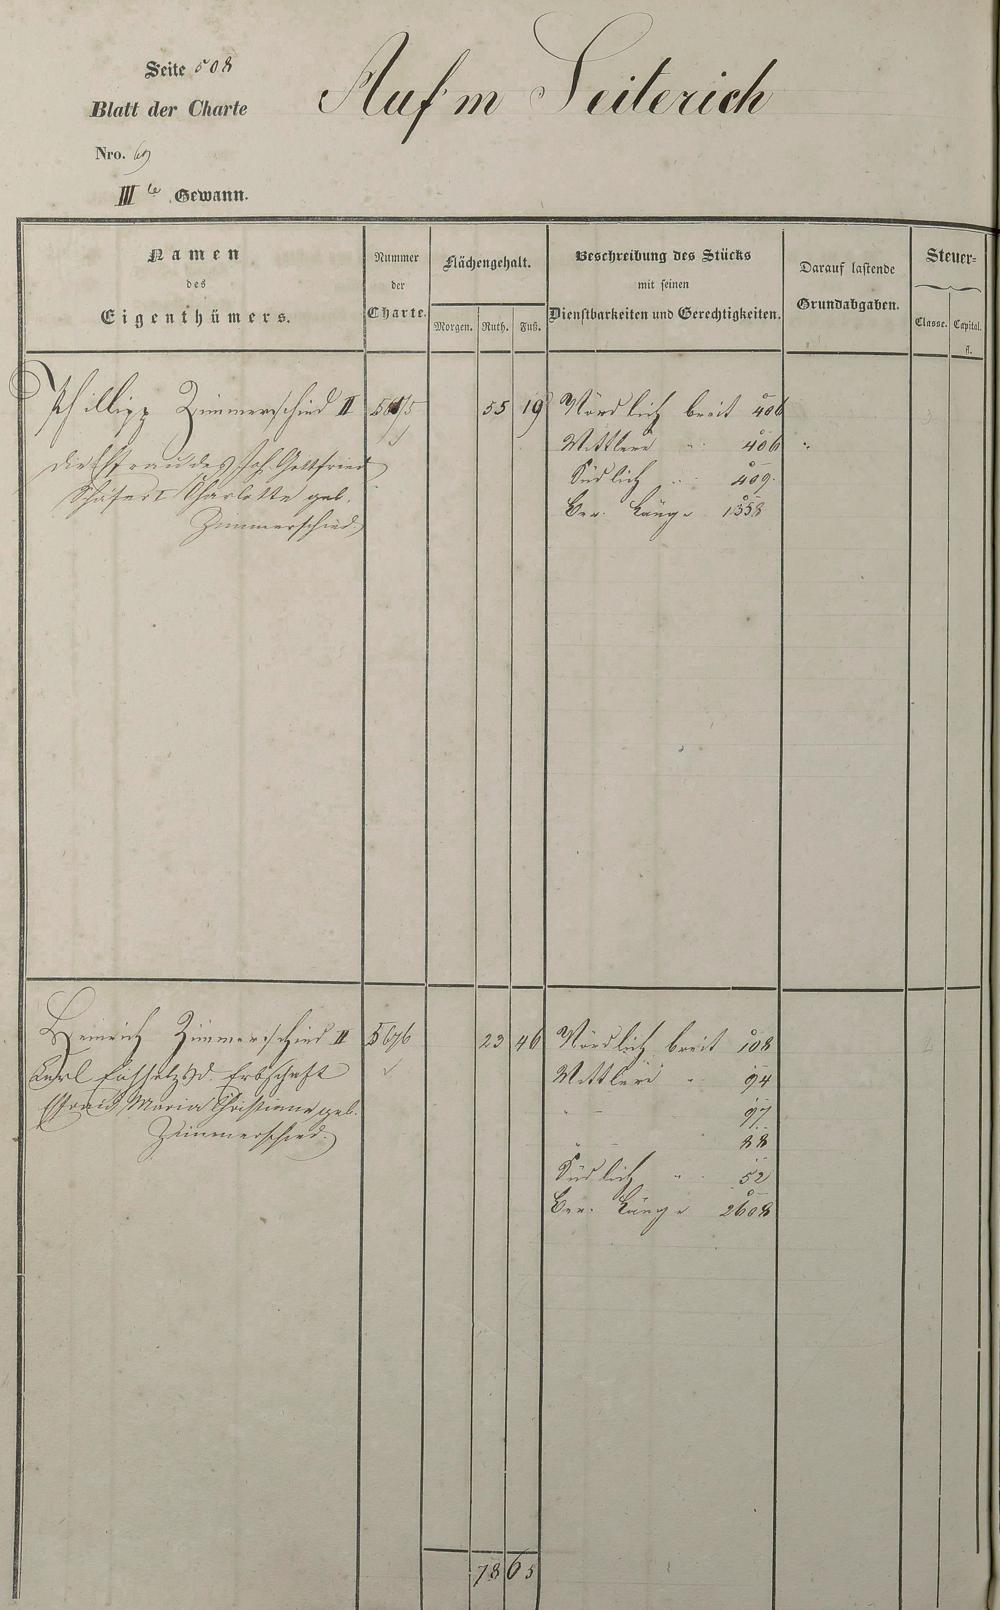 Seite 508
Blatt der Charte
Nro. 69
IIIte Gewann.
Auf'm Seiterich
Namen
des
Eigenthümers.
Nummer
der
Charte.
Flächengehalt.
Morgen. Ruth. Fuß.
Beschreibung des Stücks
mit seinen
Dienstbarkeiten und Gerechtigkeiten.
Darauf lastende
Grundabgaben.
Steuer-
Classe. Capital.
fl.
Phillipp Zimmerschied II 5675 55 19 Nördlich breit 406
Mittlere " 406
die Ehefrau des Joh. Gottfried
Südlich " 409
Schäfer I Charlotte geb.
Ber. Länge 1358
Zimmerschied.
Heinrich Zimmerschied II 5676 23 46 Nördlich breit 108
Carl Erbschaft
Mittlere " 94
Ehefrau Maria Christiane geb.
" 97
Zimmerschied.
" 88
Südlich " 52
Ber. Länge 2608
78 65